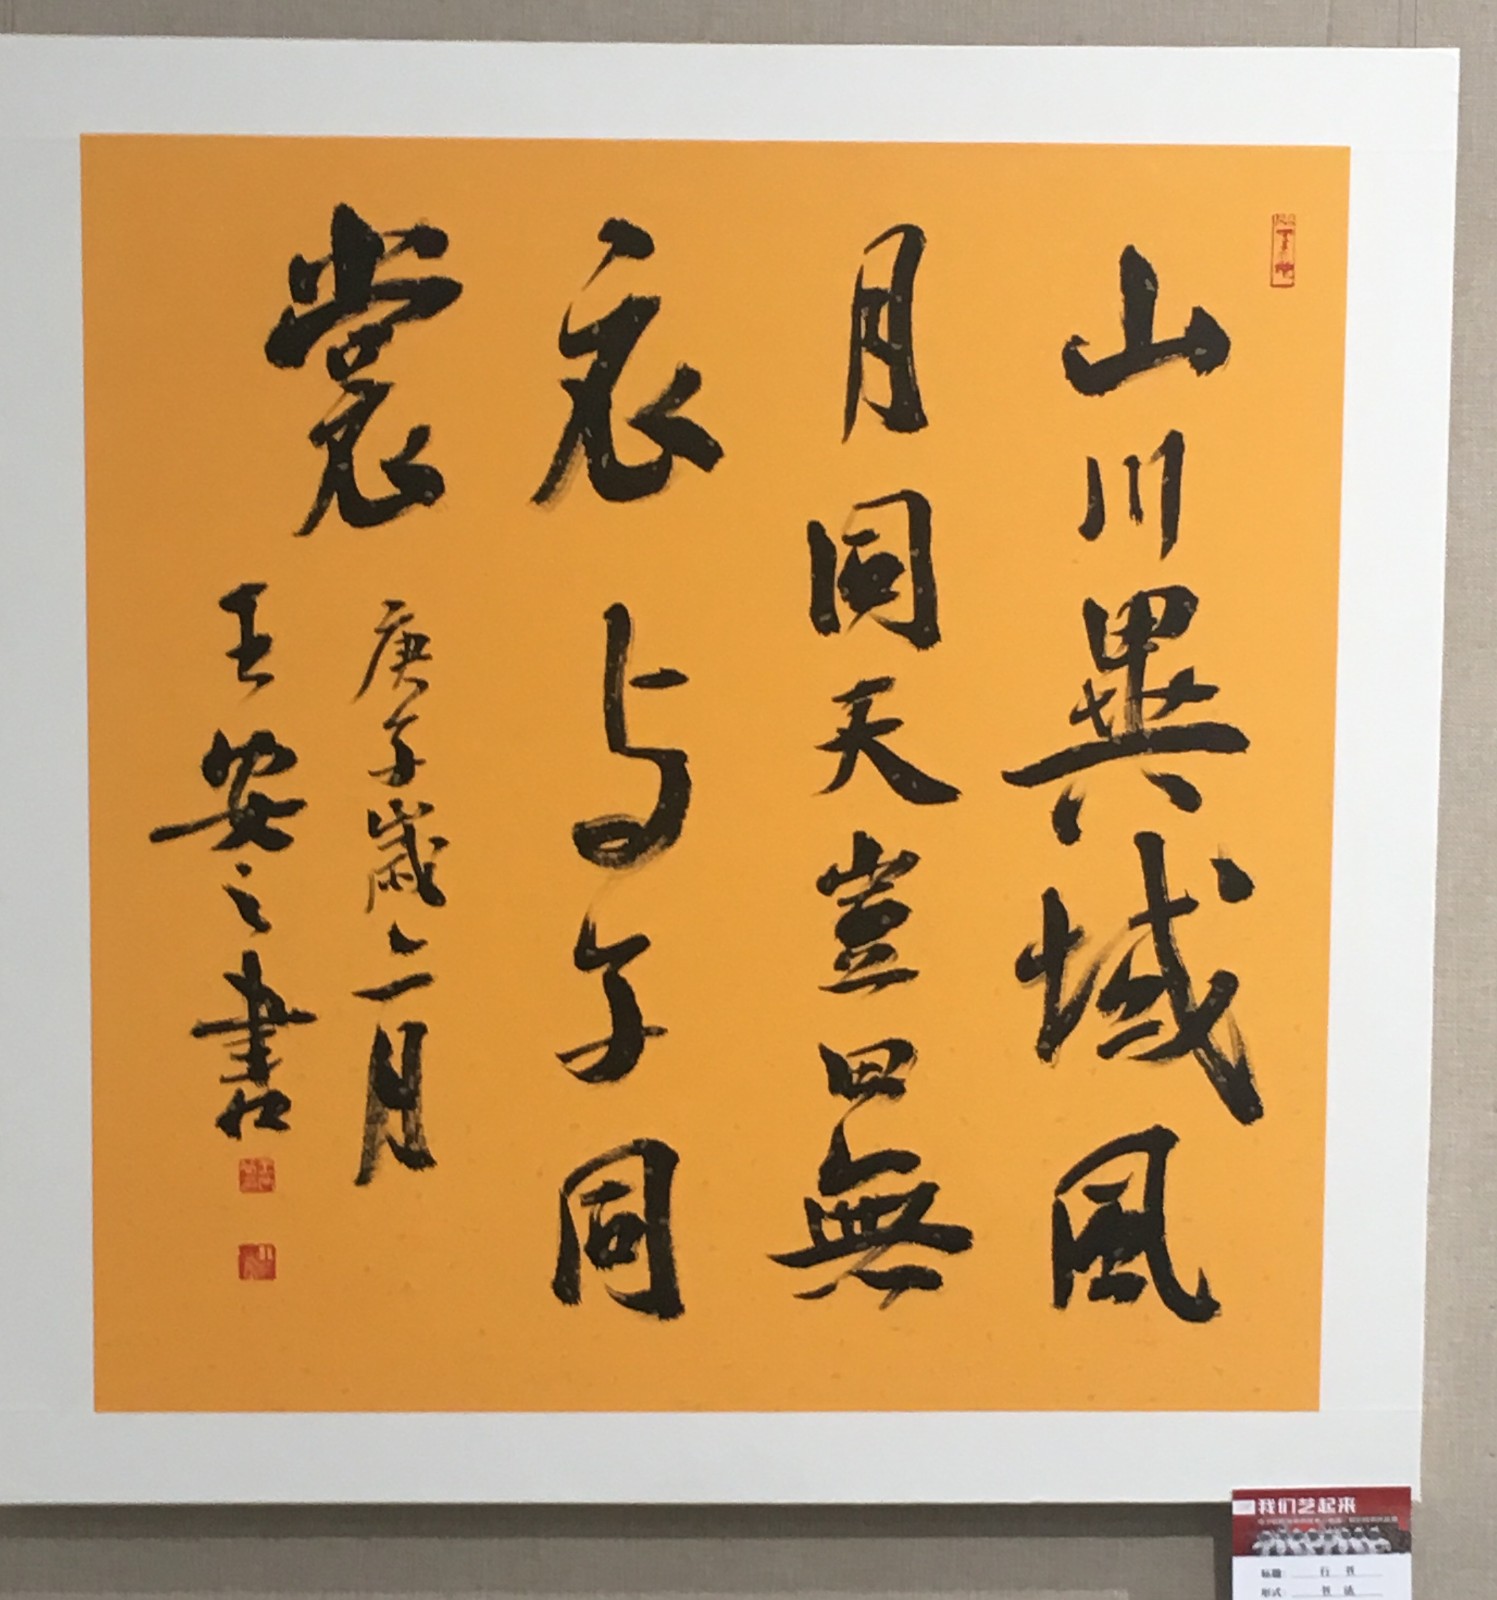 山川異域風
月同天豈曰無
衣与子同
裳
庚子歲二月
王安之書
我们艺起来
标题：行书
形式：书法